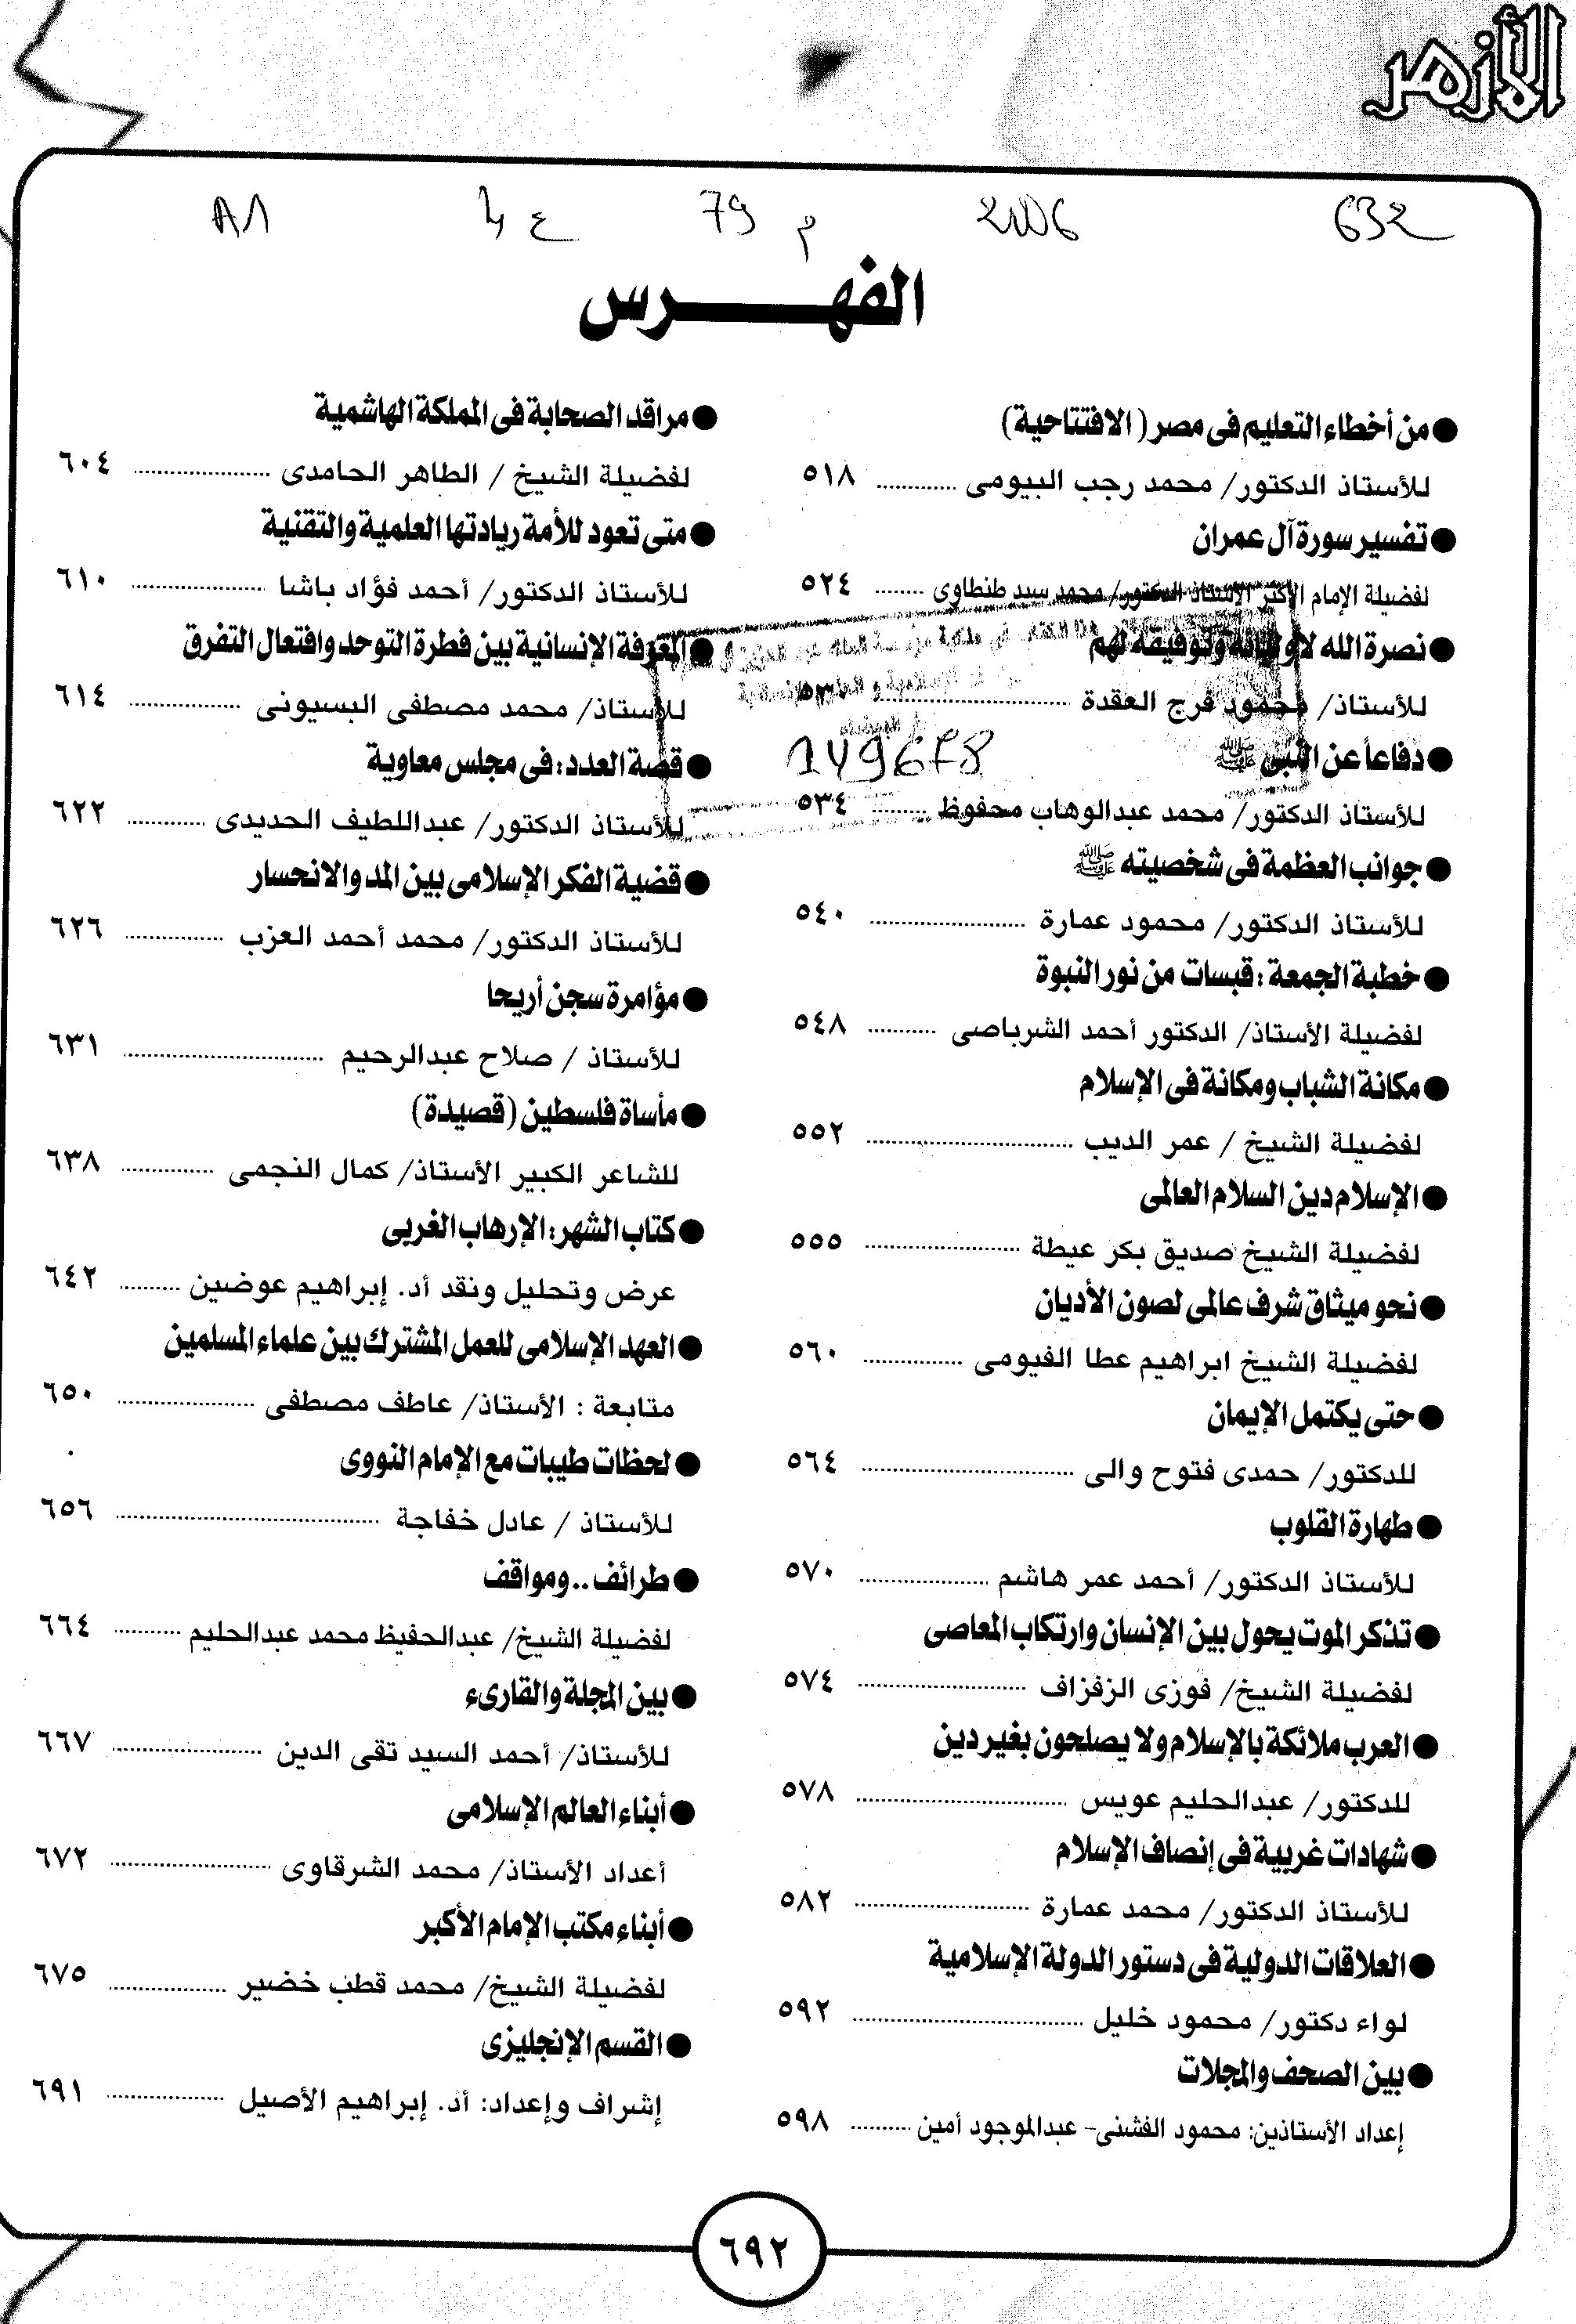 الأزهر
632 2006 م 79 ع 4 A1
الفهرس
● من أخطاء التعليم فى مصر ( الافتتاحية )
للأستاذ الدكتور/ محمد رجب البيومى ............ ٥١٨
● تفسير سورة آل عمران
لفضيلة الإمام الأكبر الأستاذ الدكتور/ محمد سيد طنطاوى ........ ٥٢٤
● نصرة الله لأوليائه وتوفيقه لهم
للأستاذ/ محمود فرج العقدة ............
● دفاعاً عن النبى ﷺ
149678
للأستاذ الدكتور/ محمد عبدالوهاب محفوظ ........ ٥٣٤
● جوانب العظمة فى شخصيته ﷺ
للأستاذ الدكتور/ محمود عمارة ............ ٥٤٠
● خطبة الجمعة : قبسات من نور النبوة
لفضيلة الأستاذ/ الدكتور أحمد الشرباصى .......... ٥٤٨
● مكانة الشباب ومكانة فى الإسلام
لفضيلة الشيخ / عمر الديب ............ ٥٥٢
● الإسلام دين السلام العالمى
لفضيلة الشيخ صديق بكر عيطة ............ ٥٥٥
● نحو ميثاق شرف عالمى لصون الأديان
لفضيلة الشيخ ابراهيم عطا الفيومى ............ ٥٦٠
● حتى يكتمل الإيمان
للدكتور/ حمدى فتوح والى ............ ٥٦٤
● طهارة القلوب
للأستاذ الدكتور/ أحمد عمر هاشم ............ ٥٧٠
● تذكر الموت يحول بين الإنسان وارتكاب المعاصى
لفضيلة الشيخ/ فوزى الزفزاف ............ ٥٧٤
● العرب ملائكة بالإسلام ولا يصلحون بغير دين
للدكتور/ عبدالحليم عويس ............ ٥٧٨
● شهادات غربية فى إنصاف الإسلام
للأستاذ الدكتور/ محمد عمارة ............ ٥٨٢
● العلاقات الدولية فى دستور الدولة الإسلامية
لواء دكتور/ محمود خليل ............ ٥٩٢
● بين الصحف والمجلات
إعداد الأستاذين: محمود الفشنى- عبدالموجود أمين .......... ٥٩٨
● مراقد الصحابة فى المملكة الهاشمية
لفضيلة الشيخ / الطاهر الحامدى ............ ٦٠٤
● متى تعود للأمة ريادتها العلمية والتقنية
للأستاذ الدكتور/ أحمد فؤاد باشا ............ ٦١٠
● المعرفة الإنسانية بين فطرة التوحد وافتعال التفرق
للأستاذ/ محمد مصطفى البسيونى ............ ٦١٤
● قصة العدد : فى مجلس معاوية
للأستاذ الدكتور/ عبداللطيف الحديدى ............ ٦٢٢
● قضية الفكر الإسلامى بين المد والانحسار
للأستاذ الدكتور/ محمد أحمد العزب ............ ٦٢٦
● مؤامرة سجن أريحا
للأستاذ / صلاح عبدالرحيم ............ ٦٣١
● مأساة فلسطين (قصيدة)
للشاعر الكبير الأستاذ/ كمال النجمى ............ ٦٣٨
● كتاب الشهر : الإرهاب الغربى
عرض وتحليل ونقد أد. إبراهيم عوضين .......... ٦٤٢
● العهد الإسلامى للعمل المشترك بين علماء المسلمين
متابعة : الأستاذ/ عاطف مصطفى ............ ٦٥٠
● لحظات طيبات مع الإمام النووى
للأستاذ / عادل خفاجة ............ ٦٥٦
● طرائف .. ومواقف
لفضيلة الشيخ/ عبدالحفيظ محمد عبدالحليم .......... ٦٦٤
● بين المجلة والقارىء
للأستاذ/ أحمد السيد تقى الدين ............ ٦٦٧
● أبناء العالم الإسلامى
أعداد الأستاذ/ محمد الشرقاوى ............ ٦٧٢
● أبناء مكتب الإمام الأكبر
لفضيلة الشيخ/ محمد قطب خضير ............ ٦٧٥
● القسم الإنجليزى
إشراف وإعداد: أد. إبراهيم الأصيل ............ ٦٩١
٦٩٢